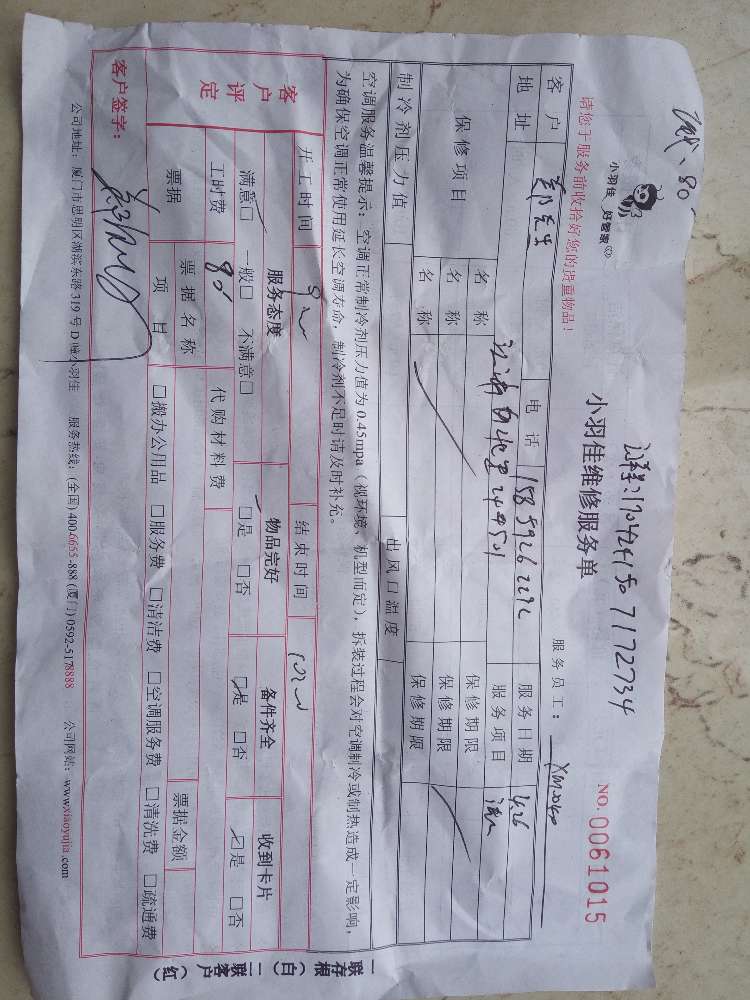 小羽佳 好管家
小羽佳维修服务单
NO. 0061015
请您于服务前收拾好您的贵重物品!
服务员工: XM2040
客户 先生 电话 15859262292 服务日期 4.26
地址 24#501 服务项目
保修项目 名称 保修期限
名称 保修期限
名称 保修期限
制冷剂压力值 出风口温度
空调服务温馨提示:空调正常制冷剂压力值为0.45mpa(视环境、机型而定),拆装过程会对空调制冷或制热造成一定影响,
为确保空调正常使用延长空调寿命,制冷剂不足时请及时补充。
客户评定
开工时间 结束时间
服务态度 物品完好 备件齐全 收到卡片
满意□ 一般□ 不满意□ □是 □否 □是 □否 □是 □否
工时费 80 代购材料费
票据 票据名称 票据金额
项目 □搬办公用品 □服务费 □清洁费 □空调服务费 □清洗费 □疏通费
客户签字:
公司地址:厦门市思明区湖滨东路319号D幢小羽佳 服务热线:(全国) 400-6655-888 (厦门) 0592-5178888 公司网站:www.xiaoyujia.com
一联存根(白) 二联客户(红)